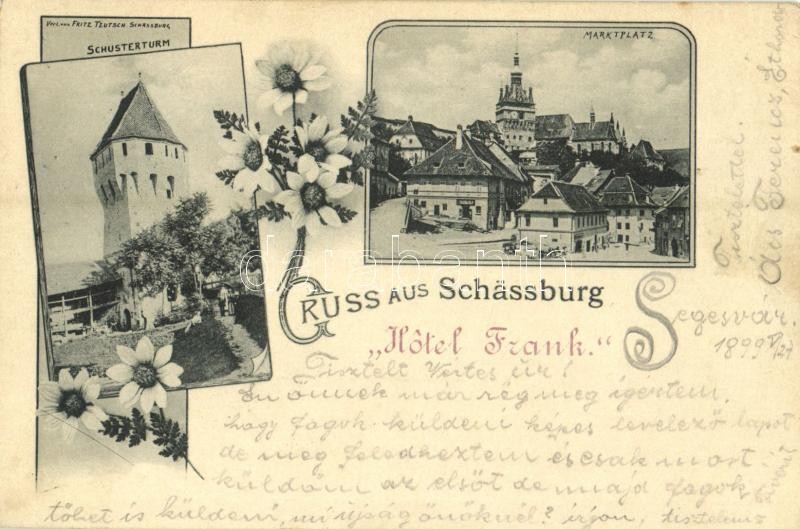 Verl. von Fritz Teutsch Schässburg
Schusterturm
Marktplatz
Gruss aus Schässburg
"Hôtel Frank."
Segesvár.
1899
Tisztelt Vértes úr!
Én önnek már rég meg igértem,
hogy fogok küldeni képes levelező lapot
de meg feledkeztem és csak most
küldöm az elsőt de majd fogok
többet is küldeni, mi ujság önöknél? irjon, 
Tisztelettel.
Ács Ferencz,
darabanth